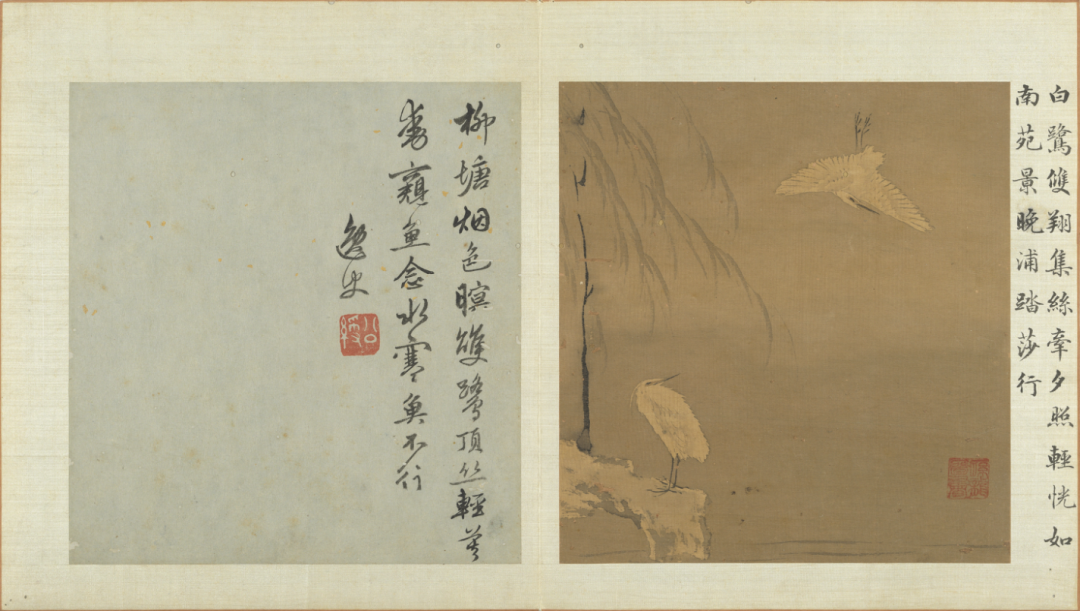 白鷺雙翔集絲牽夕照輕恍如
南苑景晚浦踏莎行
柳塘烟色暝雙鷺頂絲輕莫
窺魚念水寒魚不行
逸史
公綬